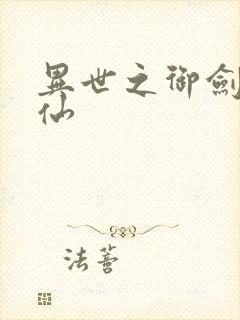 異世之御劍
仙
法善